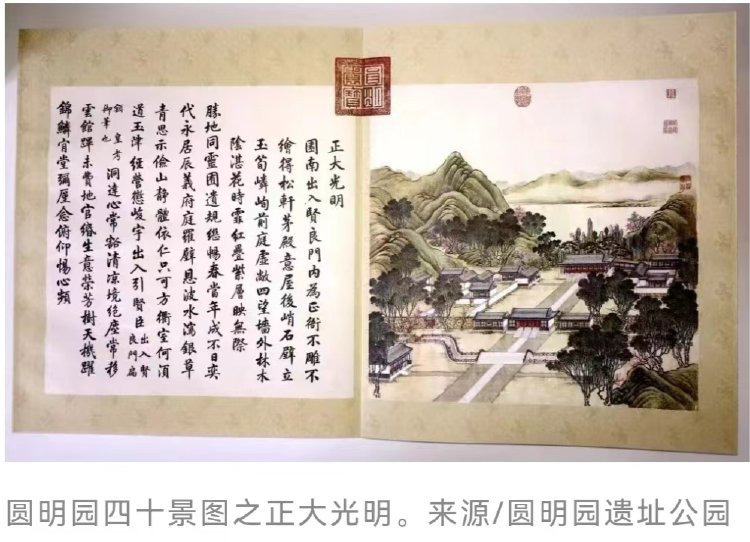 正大光明
園南出入賢良門內為正衙不雕不
繪得松軒茅殿意屋後峭石壁立
玉筍嶙峋前庭虛敞四望墻外林木
陰湛花時霏紅疊紫層映無際
勝地同靈囿遺規繼暢春當年成不日奕
代永居辰義府庭羅壁恩波水瀉銀草
青思示儉山靜體依仁只可方衢室何須
道玉津經營懲峻宇出入引賢臣出入賢良門扁
額皇考御筆也洞達心常豁清涼境絕塵常移
雲館蹕未費地官緡生意榮芳樹天機躍
錦鱗肯堂彌厪念俯仰惕心頻
圆明园四十景图之正大光明。来源/圆明园遗址公园